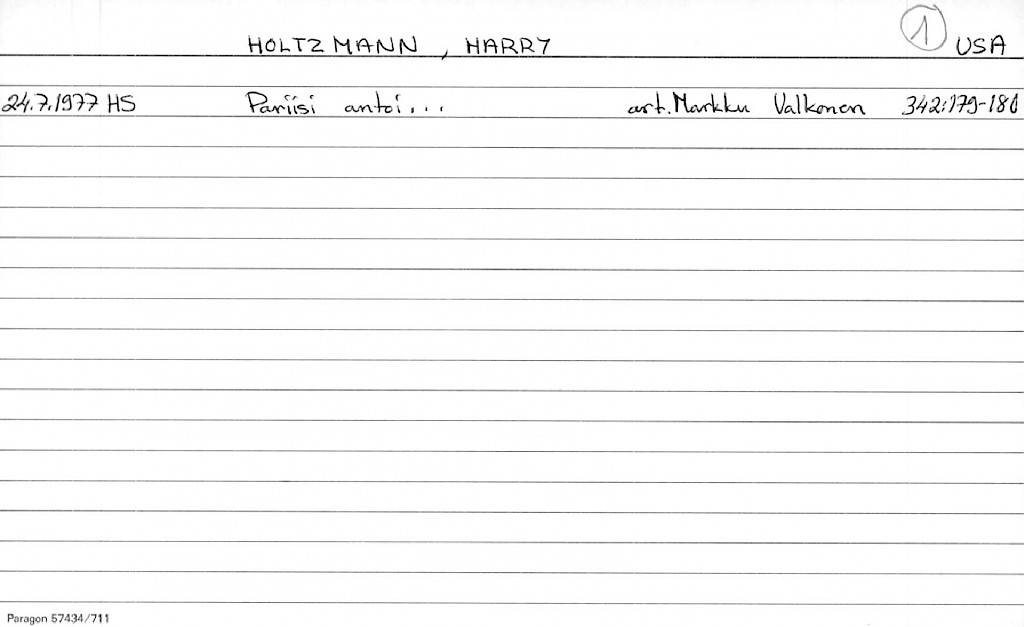 HOLTZMANN, HARRY 1 USA
24.7.1977 HS Pariisi antoi... art. Markku Valkonen 342:179-180
Paragon 57434/711